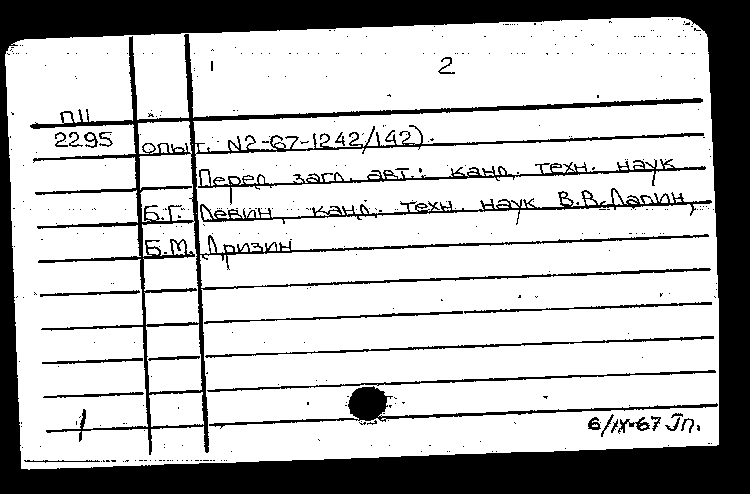 2
П11
2295 опыт. N2-67-1242/142).
Перед загл. авт.: канд. техн. наук
Б.Г. Левин, канд. техн. наук В.В. Лапин,
Б.М. Дризин
6/IX-67 Тп.